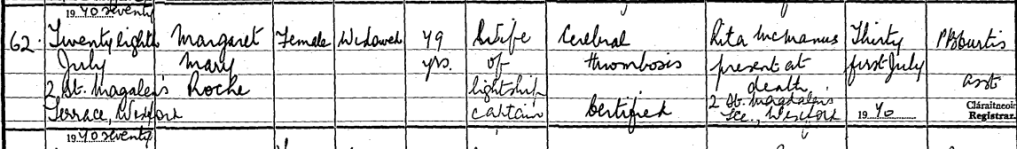 1970 seventy
62. Twentyeighth Margaret Female Widowed 79 Wife Cerebral Rita McManus Thirty PB Curtis
July Mary yrs. of thrombosis present at first July
2, St. Magalen's Roche lightship death asst
Terrace, Wexford captain Certified 2 St. Magdalen's Cláraitheoir
Tce., Wexford 1970 Registrar.
1970 seventy